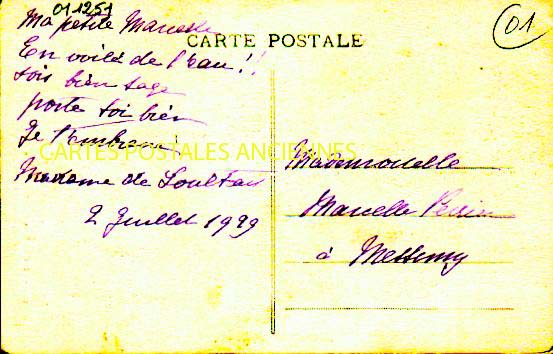 011251
01
CARTE POSTALE
Ma petite Marcelle
En voilà de l'eau !!
sois bien sage
porte toi bien
Je t'embrasse
CARTES POSTALES ANCIENNES
Madame de
2 Juillet 1929
Mademoiselle
Marcelle Perrin
à Messimy